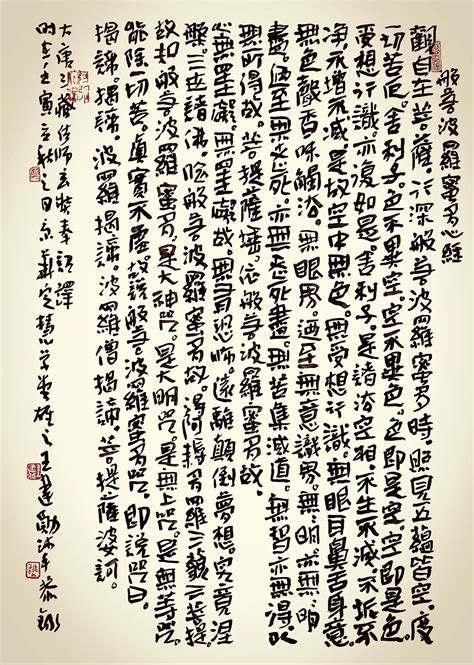 般若波羅蜜多心經
觀自在菩薩。行深般若波羅蜜多時。照見五蘊皆空。度
一切苦厄。舍利子。色不異空。空不異色。色即是空。空即是色。
受想行識。亦復如是。舍利子。是諸法空相。不生不滅。不垢不
淨。不增不減。是故空中無色。無受想行識。無眼耳鼻舌身意。
無色聲香味觸法。無眼界。乃至無意識界。無無明。亦無無明
盡。乃至無老死。亦無老死盡。無苦集滅道。無智亦無得。以
無所得故。菩提薩埵。依般若波羅蜜多故。
心無罣礙。無罣礙故。無有恐怖。遠離顛倒夢想。究竟涅
槃。三世諸佛。依般若波羅蜜多故。得阿耨多羅三藐三菩提。
故知般若波羅蜜多。是大神咒。是大明咒。是無上咒。是無等等咒。
能除一切苦。真實不虛。故說般若波羅蜜多咒。即說咒曰
揭諦。揭諦。波羅揭諦。波羅僧揭諦。菩提薩婆訶。
大唐三藏法師玄奘奉詔譯
時在壬寅立秋之日京華定慧學堂 之王建勛沐手恭錄